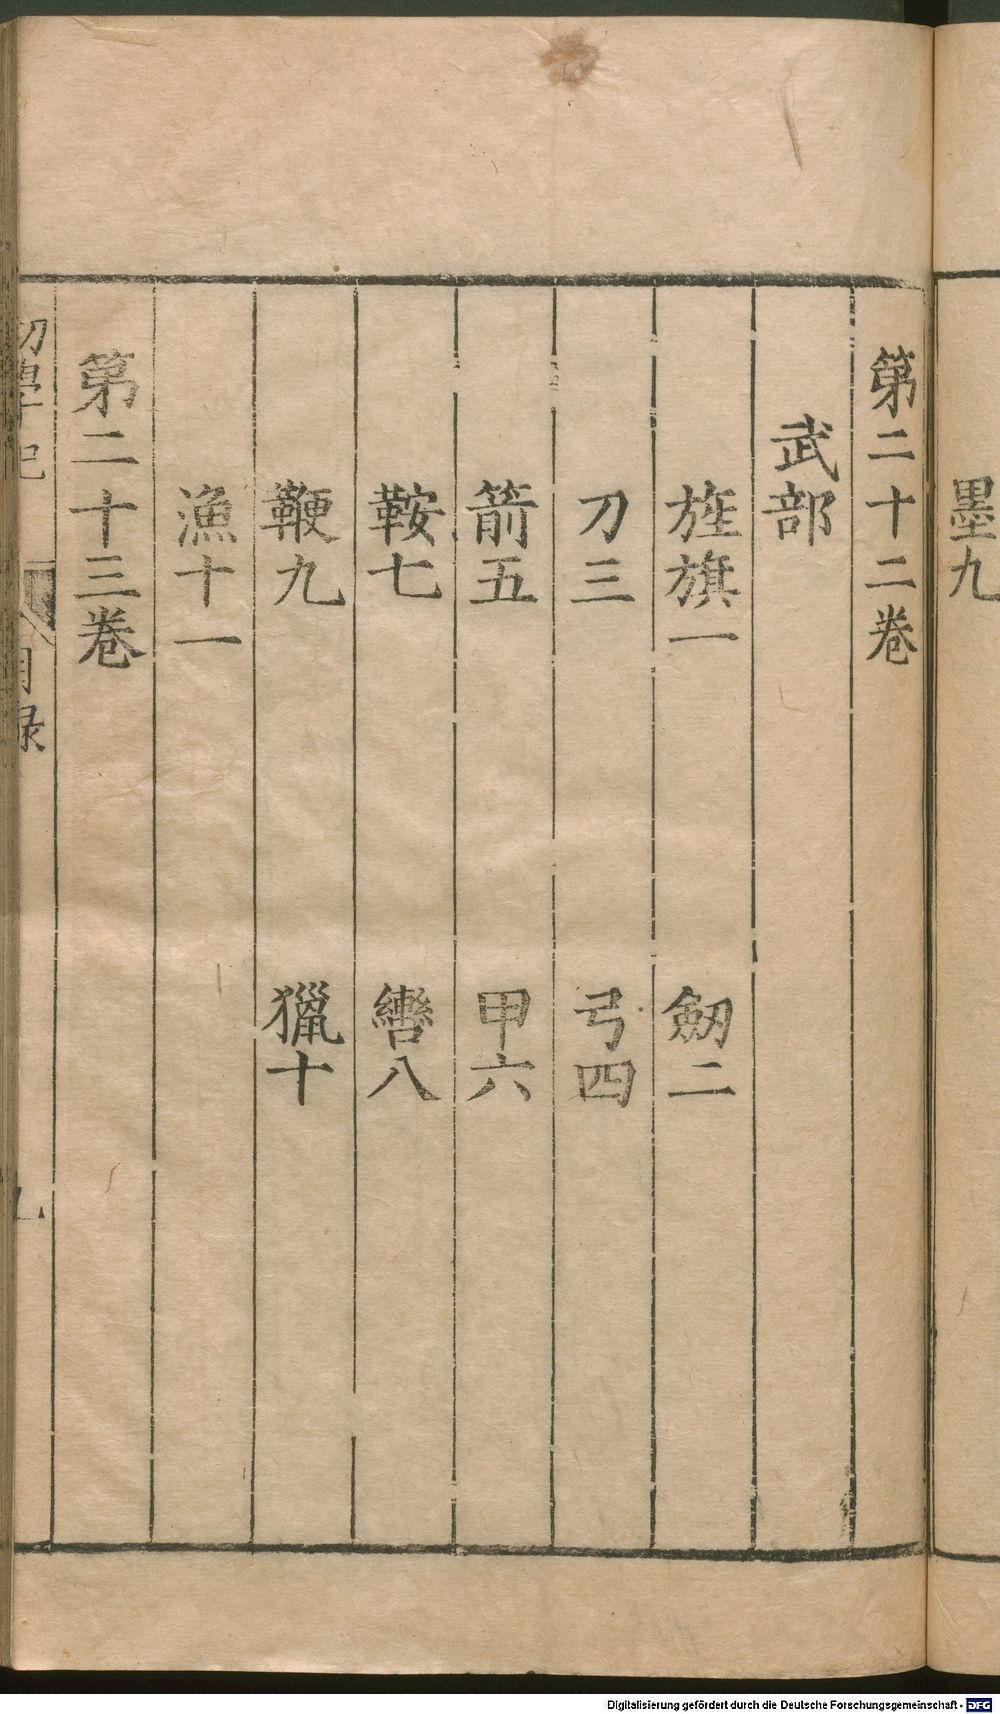 墨九
第二十二卷
武部
旌旗一　劒二
刀三　弓四
箭五　甲六
鞍七　轡八
鞭九　獵十
漁十一
第二十三卷
初學記　目錄　九
Digitalisierung gefördert durch die Deutsche Forschungsgemeinschaft - DFG